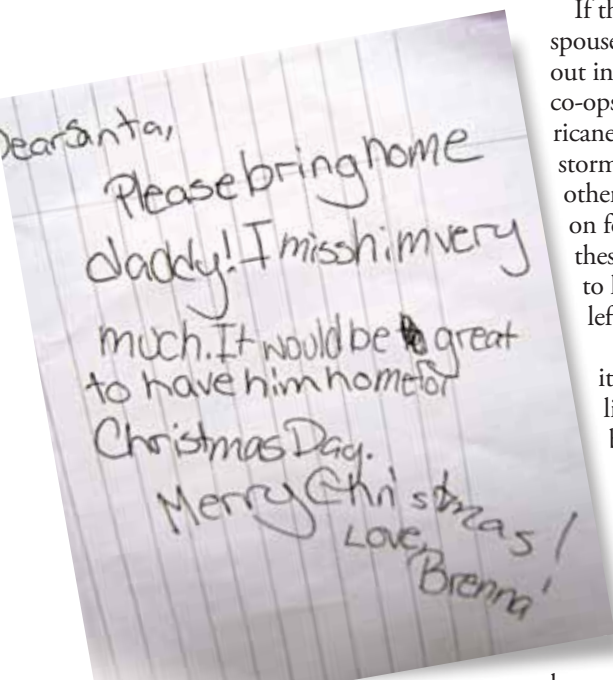 Dear Santa,
Please bring home
daddy! I miss him very
much. It would be great
to have him home for
Christmas Day.
Merry Christmas!
Love,
Brenna
If th
spouse
out in
co-ops
ricane
storm
other
on fo
thes
to l
left
it
li